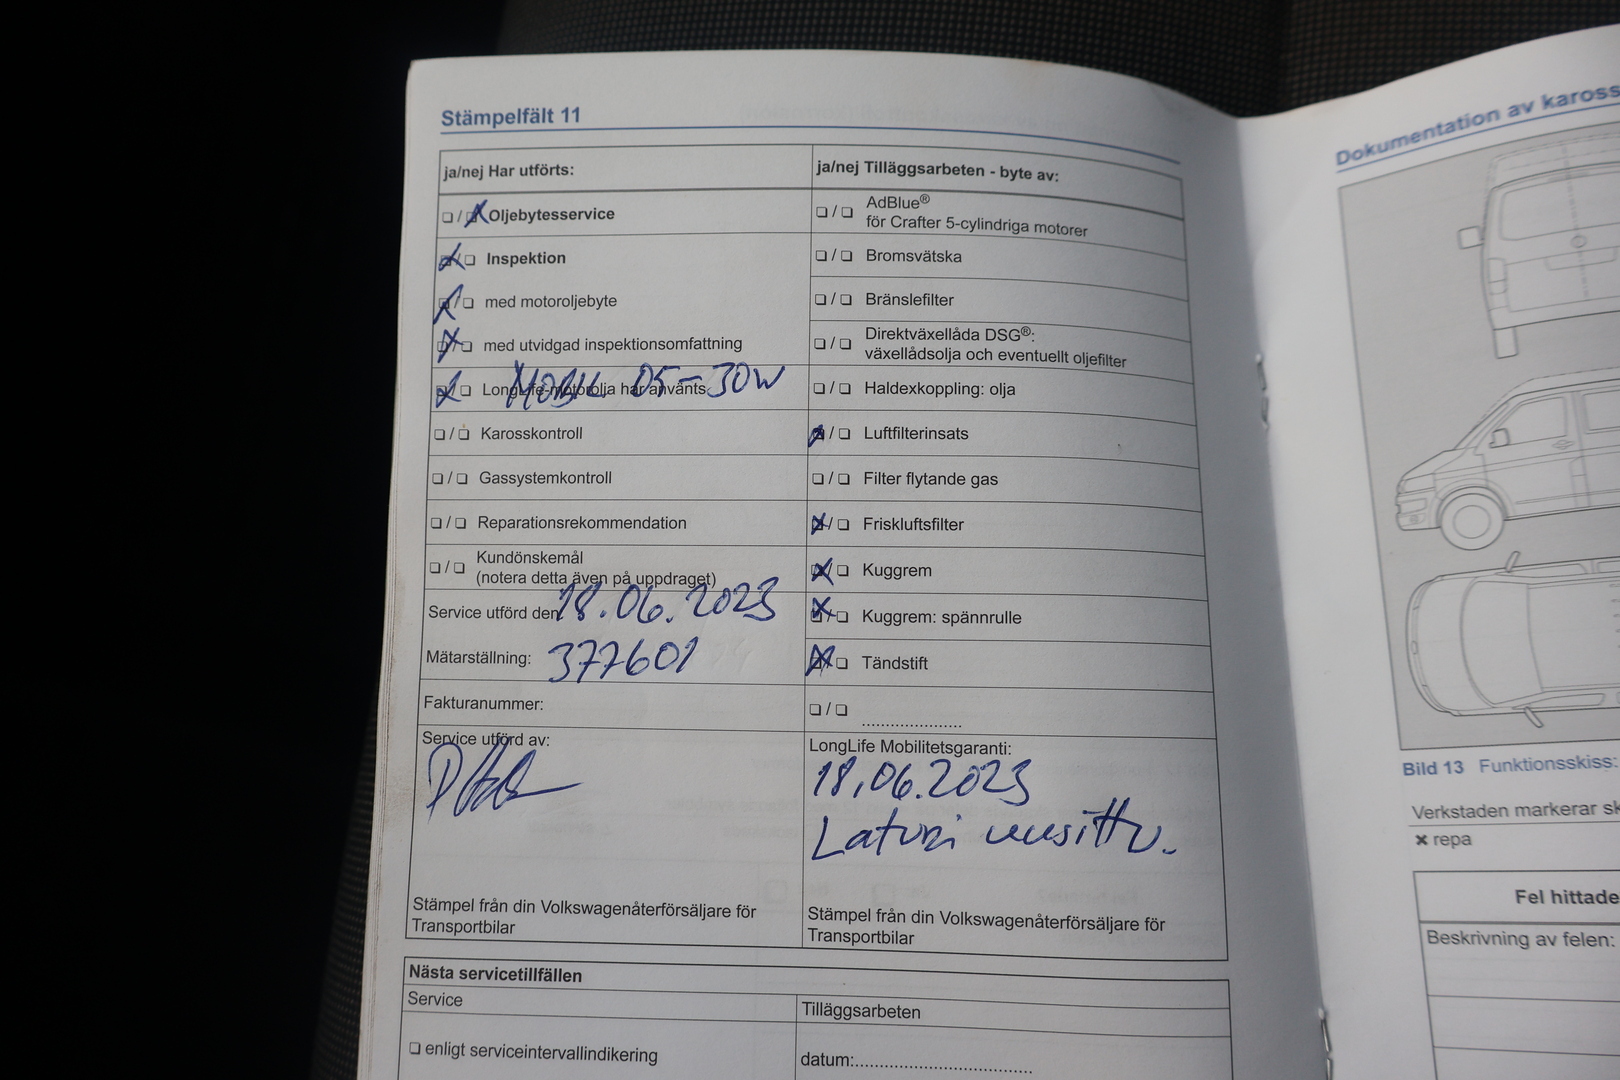 Stämpelfält 11
ja/nej Har utförts:
❏ / ❏ Oljebytesservice
❏ / ❏ Inspektion
❏ / ❏ med motoroljebyte
❏ / ❏ med utvidgad inspektionsomfattning
❏ / ❏ LongLife-motorolja har använts
MOBIL 05-30W
❏ / ❏ Karosskontroll
❏ / ❏ Gassystemkontroll
❏ / ❏ Reparationsrekommendation
❏ / ❏ Kundönskemål
(notera detta även på uppdraget)
Service utförd den 18.06.2023
Mätarställning: 377601
Fakturanummer:
Service utförd av:
Stämpel från din Volkswagenåterförsäljare för
Transportbilar
ja/nej Tilläggsarbeten - byte av:
❏ / ❏ AdBlue®
för Crafter 5-cylindriga motorer
❏ / ❏ Bromsvätska
❏ / ❏ Bränslefilter
❏ / ❏ Direktväxellåda DSG®:
växellådsolja och eventuellt oljefilter
❏ / ❏ Haldexkoppling: olja
❏ / ❏ Luftfilterinsats
❏ / ❏ Filter flytande gas
❏ / ❏ Friskluftsfilter
❏ / ❏ Kuggrem
❏ / ❏ Kuggrem: spännrulle
❏ / ❏ Tändstift
❏ / ❏ ......................
LongLife Mobilitetsgaranti:
18.06.2023
Laturi uusittu.
Stämpel från din Volkswagenåterförsäljare för
Transportbilar
Nästa servicetillfällen
Service
❏ enligt serviceintervallindikering
Tilläggsarbeten
datum:.......................................
Dokumentation av kaross
Bild 13 Funktionsskiss:
Verkstaden markerar sk
✖ repa
Fel hittade
Beskrivning av felen: